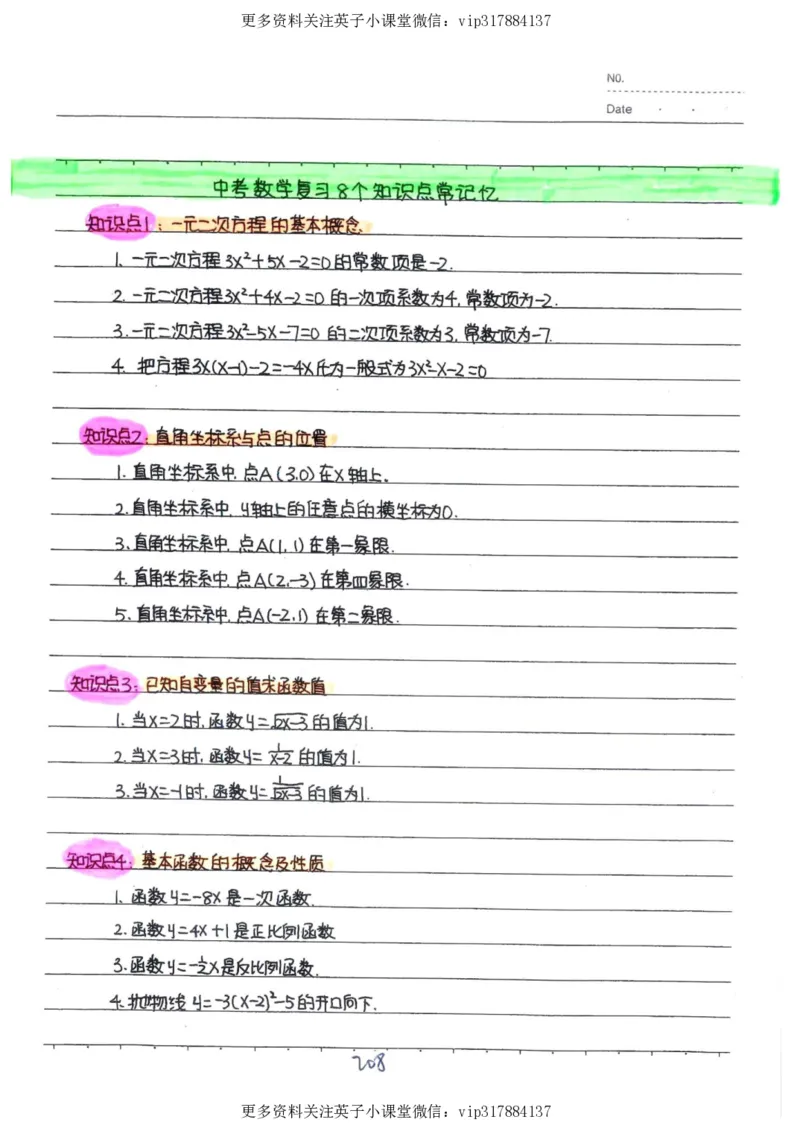 更多资料关注英子小课堂微信：vip317884137
NO.
Date
中考数学复习8个知识点常记忆
知识点1：一元二次方程的基本概念.
1. 一元二次方程3X²+5X-2=0的常数项是-2.
2. 一元二次方程3X²+4X-2=0 的一次项系数为4,常数项为-2.
3. 一元二次方程3X²-5X-7=0 的二次项系数为3,常数项为-7.
4. 把方程3X(X-1)-2=-4X化为一般式为3X²-X-2=0
知识点2：直角坐标系与点的位置
1. 直角坐标系中,点A(3,0)在X轴上.
2. 直角坐标系中, y轴上的任意点的横坐标为0.
3、直角坐标系中,点A(1,1)在第一象限.
4. 直角坐标系中,点A(2,-3)在第四象限.
5、直角坐标系中,点A(-2,1) 在第二象限.
知识点3：已知自变量的值求函数值
1. 当X=2时,函数y=√(2X-3)的值为1.
2. 当X=3时,函数y=1/(X-2)的值为1.
3. 当X=-1时,函数y=1/√(2X-3)的值为1.
知识点4：基本函数的概念及性质
1. 函数y=-8X是一次函数.
2. 函数y=4X+1是正比例函数
3. 函数y=-½X是反比例函数.
4. 抛物线y=-3(X-2)²-5的开口向下.
208
更多资料关注英子小课堂微信：vip317884137